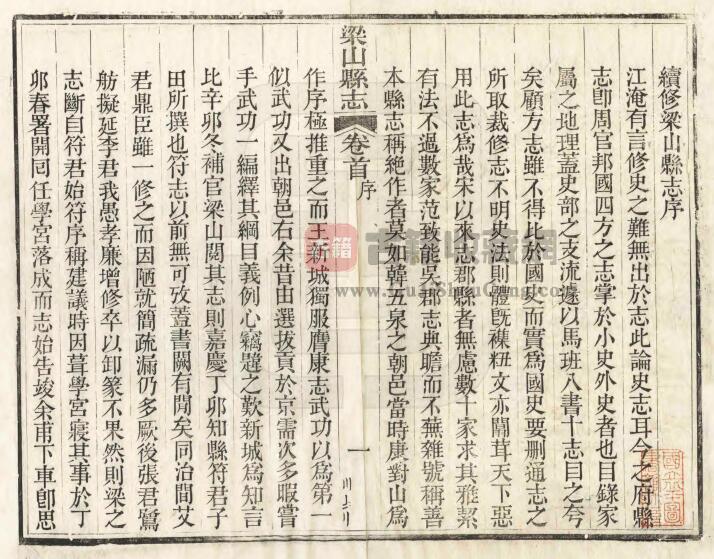 續修梁山縣志序
江淹有言修史之難無出於志此論史志耳今之府縣
志卽周官邦國四方之志掌於小史外史者也目錄家
屬之地理蓋史部之支流遽以馬班八書十志目之夸
矣顧方志雖不得比於國史而實爲國史要刪通志之
所取裁修志不明史法則體旣襍糅文亦闒茸天下惡
用此志爲哉宋以來志郡縣者無慮數十家求其雅絜
有法不過數家范致能吳郡志典贍而不蕪雜號稱善
本縣志稱絕作者莫如韓五泉之朝邑當時康對山爲
梁山縣志
卷首
序
一
作序極推重之而王新城獨服膺康志武功以爲第一
似武功又出朝邑右余昔由選拔貢於京需次多暇嘗
手武功一編繹其綱目義例心竊韙之歎新城爲知言
比辛卯冬補官梁山閱其志則嘉慶丁卯知縣符君子
田所撰也符志以前無可攷蓋書闕有閒矣同治間艾
君鼎臣雖一修之而因陋就簡疏漏仍多厥後張君鷺
舫擬延李君我愚孝廉增修卒以卸篆不果然則梁之
志斷自符君始符序稱建議時因葺學宮寢其事於丁
卯春署開同任學宮落成而志始告竣余甫下車卽思
古籍收藏網